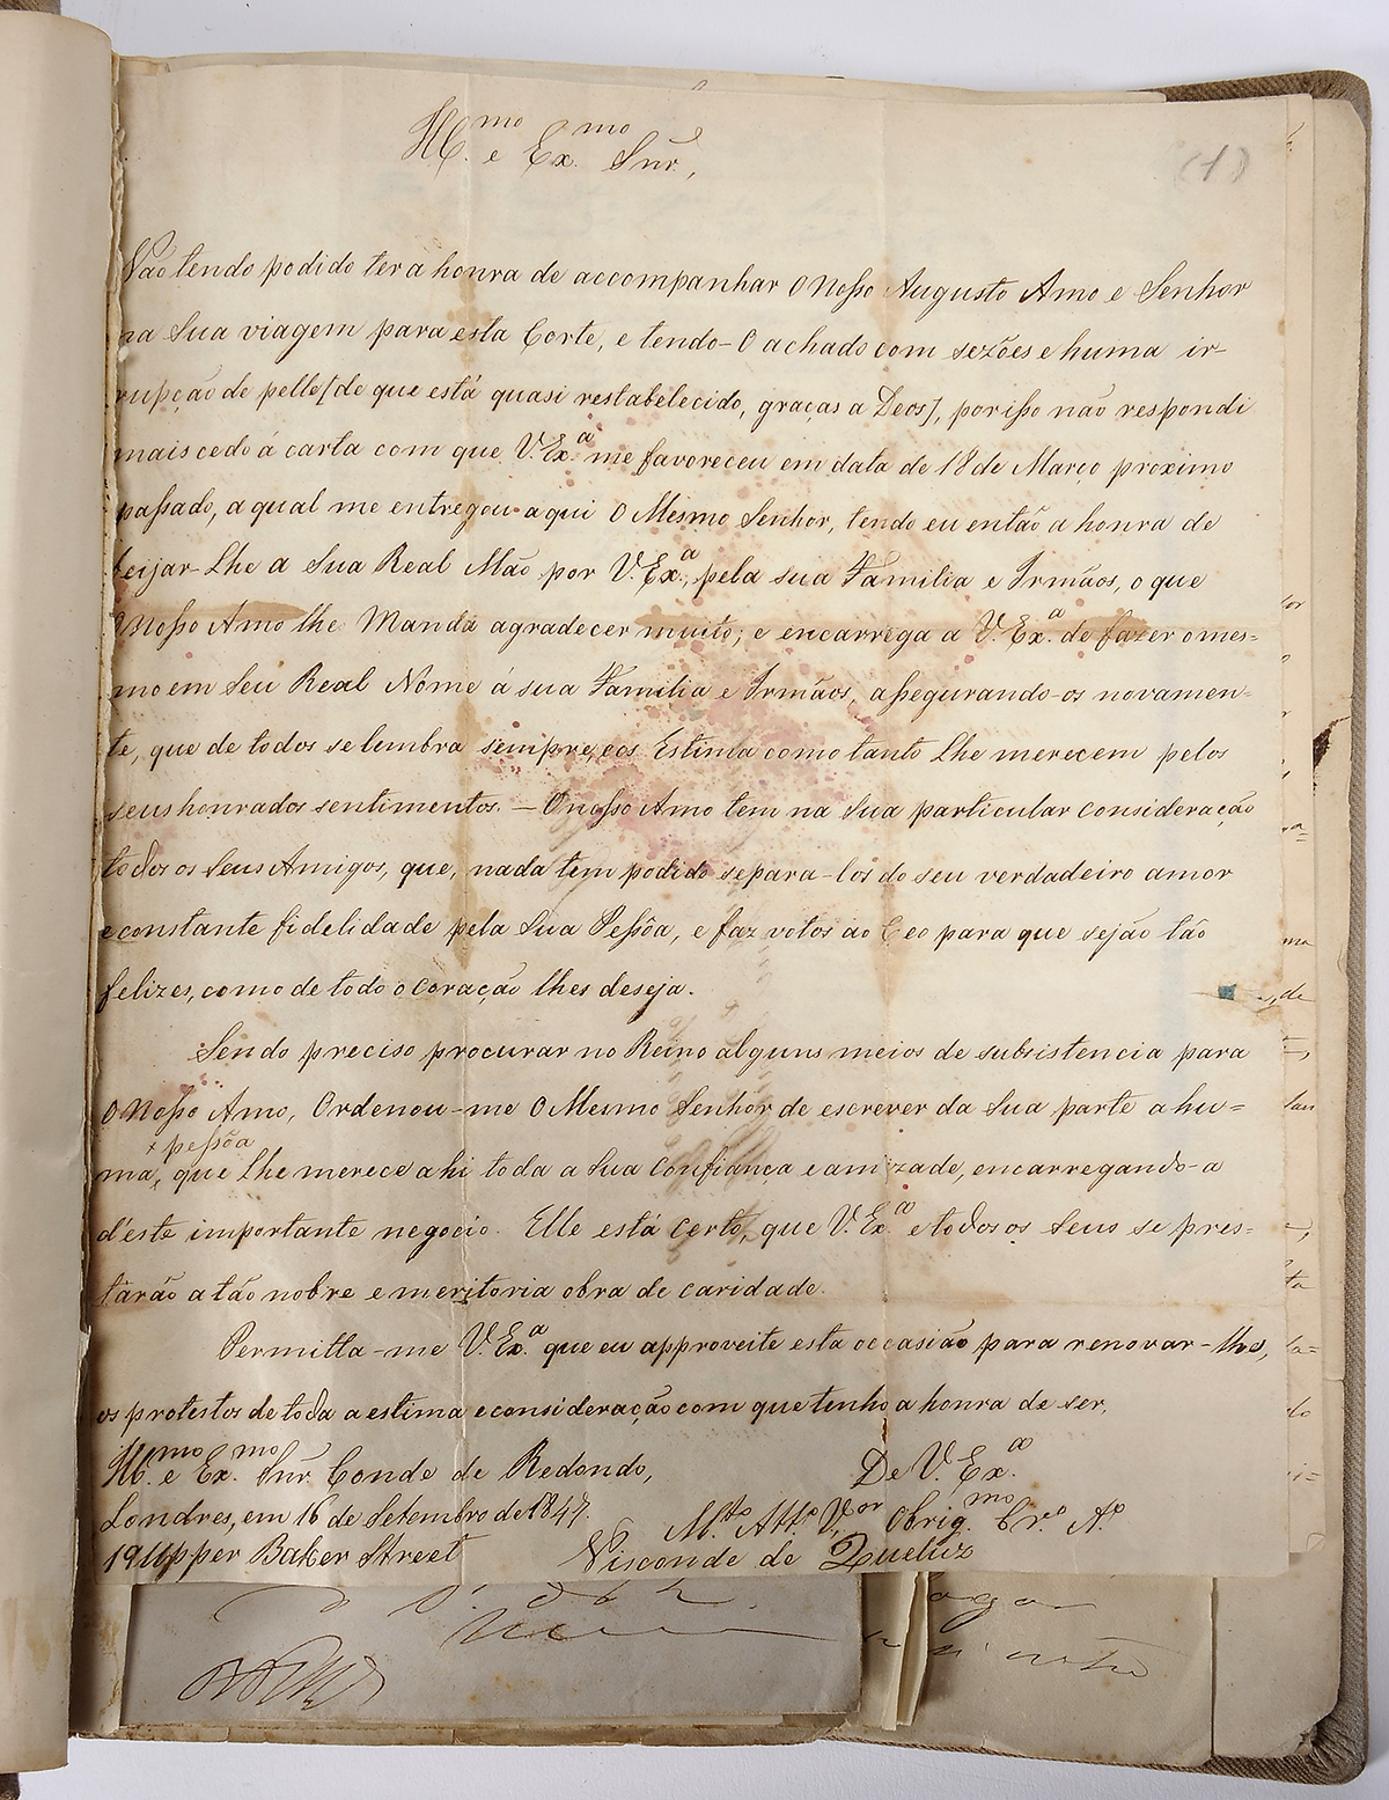 Ill.mo e Ex.mo Snr.,
(1)
Não tendo podido ter a honra de accompanhar O Nosso Augusto Amo e Senhor
na Sua viagem para esta Corte, e tendo-O achado com sezões e huma ir-
rupção de pelle [de que está quasi restabelecido, graças a Deos], por isso não respondi
mais cedo á carta com que V. Ex.a me favoreceu em data de 18 de Março proximo
passado, a qual me entregou aqui O Mesmo Senhor, tendo eu então a honra de
beijar-Lhe a Sua Real Mão por V. Ex.a, pela sua Familia e Irmãos, o que
O Nosso Amo lhe Manda agradecer muito; e encarrega a V. Ex.a de fazer o mes=
mo em Seu Real Nome á sua Familia e Irmãos, assegurando-os novamen=
te, que de todos se lembra sempre, e os Estima como tanto Lhe merecem pelos
seus honrados sentimentos. — O nosso Amo tem na Sua particular consideração
todos os Seus Amigos, que, nada tem podido separa-los do seu verdadeiro amor
e constante fidelidade pela Sua Pessôa, e faz votos ao Ceo para que sejão tão
felizes, como de todo o coração lhes deseja.
Sendo preciso procurar no Reino alguns meios de subsistencia para
O Nosso Amo, Ordenou-me O Mesmo Senhor de escrever da Sua parte a hu=
x pessôa
ma x, que Lhe merece ahi toda a Sua Confiança e amizade, encarregando-a
d'este importante negocio. Elle está certo, que V. Ex.a e todos os Seus se pres=
tarão a tão nobre e meritoria obra de caridade.
Permitta-me V. Ex.a que eu approveite esta occasião para renovar-lhe,
os protestos de toda a estima e consideração com que tenho a honra de ser,
Ill.mo e Ex.mo Snr. Conde de Redondo,
De V. Ex.a
Londres, em 16 de Setembro de 1847.
M.to Att.o V.or Obrig.mo Cr.o A.o
19 Upper Baker Street
Visconde de Queluz